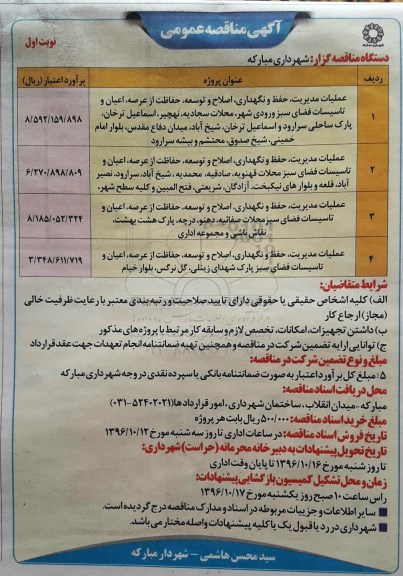 آگهی مناقصه عمومی
نوبت اول
دستگاه مناقصه گزار: شهرداری مبارکه
ردیف
عنوان پروژه
برآورد اعتبار (ریال)
۱
عملیات مدیریت، حفظ و نگهداری، اصلاح و توسعه، حفاظت از عرصه، اعیان و
تاسیسات فضای سبز ورودی شهر، محلات سجادیه، نهچیر، اسماعیل ترخان،
پارک ساحلی سرارود و اسماعیل ترخان، شیخ آباد، میدان دفاع مقدس، بلوار امام
خمینی، شیخ صدوق، محتشم و بیشه سرارود
۸/۵۹۲/۱۵۹/۸۹۸
۲
عملیات مدیریت، حفظ و نگهداری، اصلاح و توسعه، حفاظت از عرصه، اعیان و
تاسیسات فضای سبز محلات قهنویه، صادقیه، محمدیه، شیخ آباد، سرارود، نصیر
آباد، قلعه و بلوار های نیکبخت، آزادگان، شریعتی، فتح المبین و کلیه سطح شهر،
۶/۲۷۰/۸۹۸/۸۰۹
۳
عملیات مدیریت، حفظ و نگهداری، اصلاح و توسعه، حفاظت از عرصه، اعیان و
تاسیسات فضای سبز محلات صفائیه، دهنو، درچه، پارک هشت بهشت،
نقاش باشی و مجموعه اداری
۸/۱۸۵/۰۵۲/۳۲۴
۴
عملیات مدیریت، حفظ و نگهداری، اصلاح و توسعه، حفاظت از عرصه، اعیان و
تاسیسات فضای سبز پارک شهدای زینلی، گل نرگس، بلوار خیام
۳/۳۴۸/۶۱۱/۷۱۹
شرایط متقاضیان:
الف) کلیه اشخاص حقیقی یا حقوقی دارای تایید صلاحیت و رتبه بندی معتبر با رعایت ظرفیت خالی
(مجاز) ارجاع کار
ب) داشتن تجهیزات، امکانات، تخصص لازم و سابقه کار مرتبط با پروژه های مذکور
ج) توانایی ارایه تضمین شرکت در مناقصه و همچنین تهیه ضمانتنامه انجام تعهدات جهت عقد قرارداد
مبلغ و نوع تضمین شرکت در مناقصه:
۵٪ مبلغ کل برآورد اعتبار به صورت ضمانتنامه بانکی یا سپرده نقدی در وجه شهرداری مبارکه
محل دریافت اسناد مناقصه:
مبارکه -میدان انقلاب، ساختمان شهرداری، امور قراردادها (۵۲۴۰۲۰۲۱-۰۳۱)
مبلغ خرید اسناد مناقصه: ۵۰۰/۰۰۰ ریال بابت هر پروژه
تاریخ فروش اسناد مناقصه: در ساعات اداری تا روز سه شنبه مورخ ۱۳۹۶/۱۰/۱۲
تاریخ تحویل پیشنهادات به دبیرخانه محرمانه (حراست) شهرداری:
تا روز شنبه مورخ ۱۳۹۶/۱۰/۱۶ تا پایان وقت اداری
زمان و محل تشکیل کمیسیون بازگشایی پیشنهادات:
راس ساعت ۱۰ صبح روز یکشنبه مورخ ۱۳۹۶/۱۰/۱۷
سایر اطلاعات و جزییات مربوطه در اسناد و مدارک مناقصه درج گردیده است.
شهرداری در رد یا قبول یک یا کلیه پیشنهادات واصله مختار می باشد.
سید محسن هاشمی - شهردار مبارکه